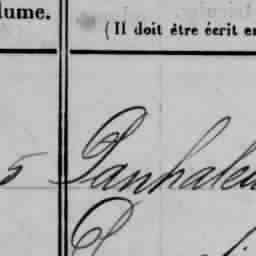 lume.
(Il doit être écrit en
5 Panhaleu